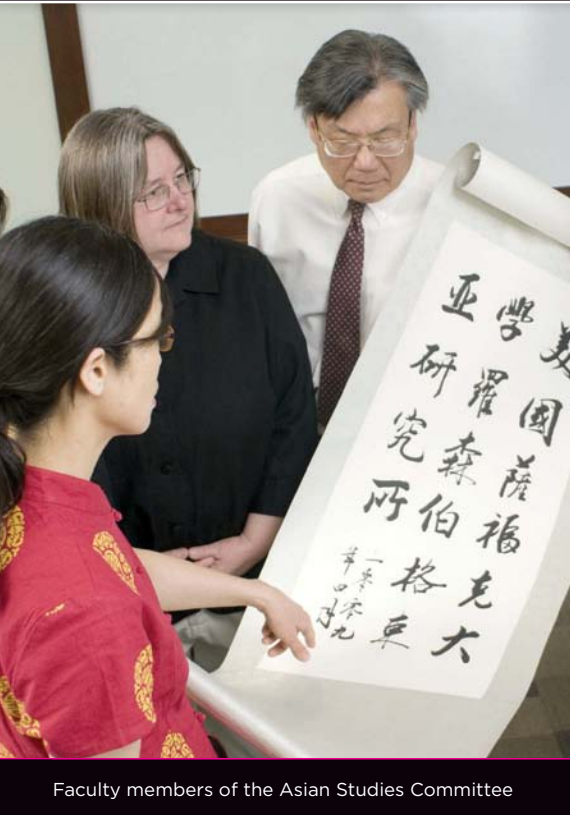 美國薩福克大
學羅森伯格東
亚研究所
二零零九
年四月
Faculty members of the Asian Studies Committee